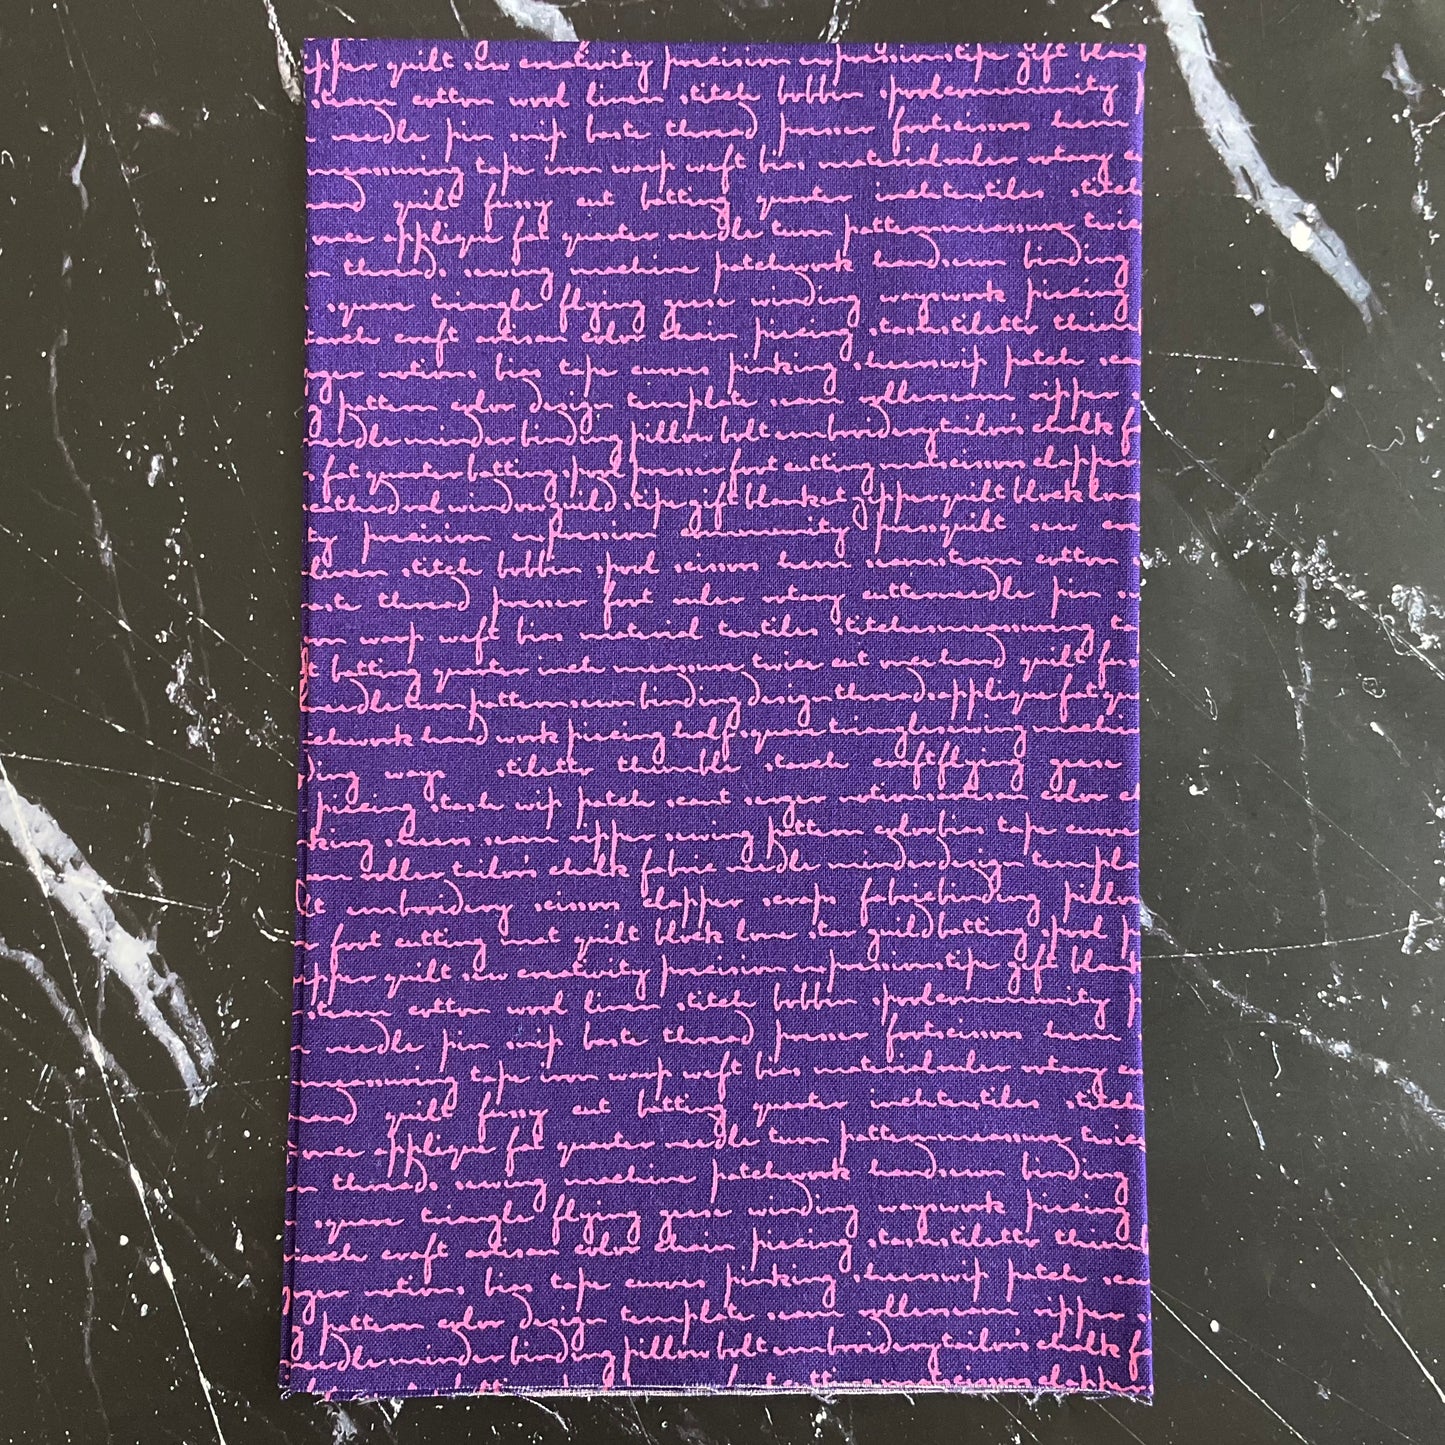 ipper quilt sew creativity precision expressionstipe gift blank
steam cotton wool linen stitch bobbin spoolcommunity p
needle pin snip baste thread presser footscissors hem
measuring tape iron warp weft bias materialruler rotary c
hand quilt fussy cut batting quarter inchtextiles stitch
once applique fat quarter needle turn patternmeasure twice
n threads sewing machine patchwork handsewn binding
square triangle flying geese winding wayswork piecing
starch craft artisan color chain piecing stashstiletto thim
ger notions bias tape curves pinking shearswip patch sca
g pattern color design template seam rollerseam ripper s
needle minder binding pillow bolt embroiderytailor's chalk f
r fat quarter batting spool presser foot cutting matscissors clapper
cathedral window guild stipe gift blanket zipperquilt block lone
ty precision expression community pressquilt sew crea
linen stitch bobbin spool scissors hem seamsteam cotton
aste thread presser foot ruler rotary cutterneedle pin s
iron warp weft bias material textiles stitchesmeasuring ta
t batting quarter inch measure twice cut oncehand quilt fus
needle turn patternsewn binding designthreadsapplique fat qua
tchwork hand work piecing half square trianglesewing machin
ding ways stiletto thimble starch craftflying geese
piecing stash wip patch scant serger notionsartisan color c
king shears seam ripper sewing pattern colorbias tape curve
am roller tailor's chalk fabric needle minderdesign templa
lt embroidery scissors clapper scraps fabricbinding pillow
r foot cutting mat quilt block lone star guildbatting spool p
ipper quilt sew creativity precision expressionstipe gift blank
steam cotton wool linen stitch bobbin spoolcommunity p
needle pin snip baste thread presser footscissors hem
measuring tape iron warp weft bias materialruler rotary c
hand quilt fussy cut batting quarter inchtextiles stitch
once applique fat quarter needle turn patternmeasure twice
n threads sewing machine patchwork handsewn binding
square triangle flying geese winding wayswork piecing
starch craft artisan color chain piecing stashstiletto thim
ger notions bias tape curves pinking shearswip patch sca
g pattern color design template seam rollerseam ripper s
needle minder binding pillow bolt embroiderytailor's chalk f
t cutting matscissors clapper